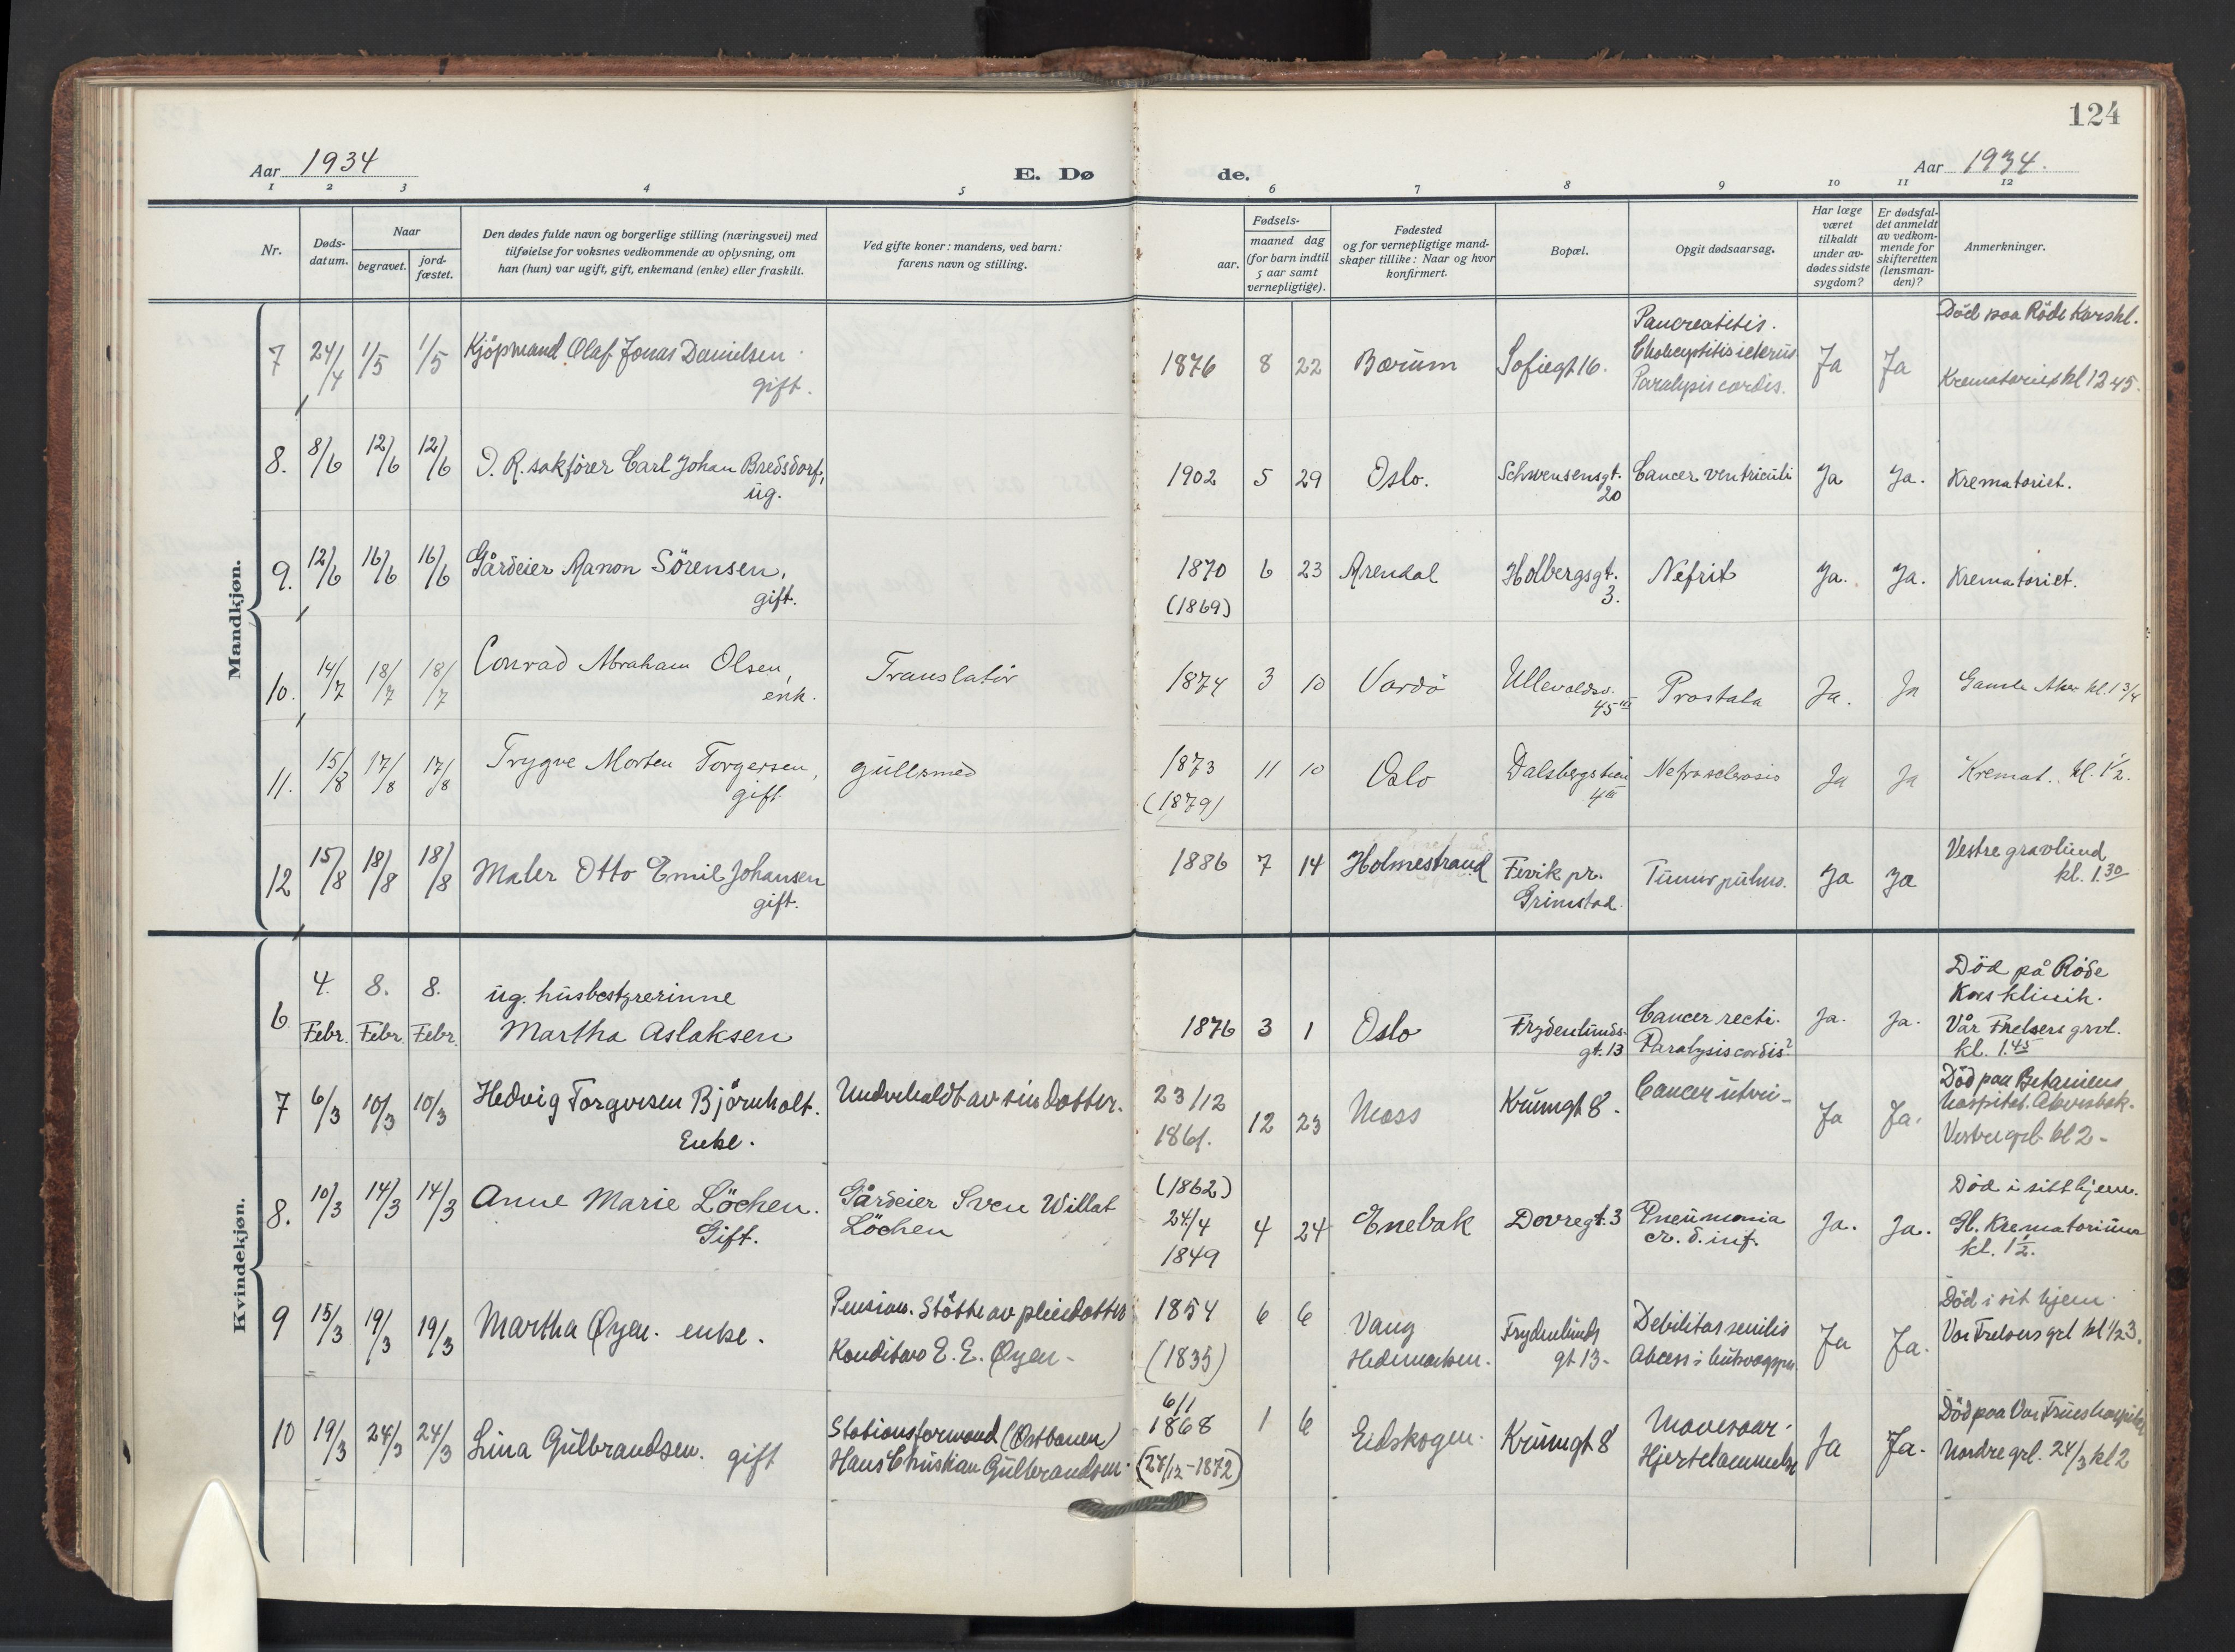 124
Aar 1934
E. Dø de.
Aar 1934.
1 2 3 4 5 6 7 8 9 10 11 12
Nr.
Døds-
datum.
Naar
begravet.
jord-
fæstet.
Den dødes fulde navn og borgerlige stilling (næringsvei) med
tilføielse for voksnes vedkommende av oplysning, om
han (hun) var ugift, gift, enkemand (enke) eller fraskilt.
Ved gifte koner: mandens, ved barn:
farens navn og stilling.
aar.
Fødsels-
maaned dag
(for barn indtil
5 aar samt
vernepligtige).
Fødested
og for vernepligtige mand-
skaper tillike: Naar og hvor
konfirmert.
Bopæl.
Opgit dødsaarsag.
Har læge
været
tilkaldt
under av-
dødes sidste
sygdom?
Er dødsfal-
det anmeldt
av vedkom-
mende for
skifteretten
(lensman-
den)?
Anmerkninger.
Mandkjøn.
7 24/4 1/5 1/5 Kjöpmand Olaf Jonas Danielsen
gift.
1876 8 22 Bærum Sofiegt 16.
Pancreatitis.
Paralysis cordis.
Ja Ja
Död paa Röde Korskl.
Krematoriet kl 12 45.
8. 8/6 12/6 12/6 O. R. sakfører Carl Johan Bredsdorf,
ug.
1902 5 29 Oslo. Schwensensgt.
20
Cancer ventriculi Ja Ja. Krematoriet.
9. 12/6 16/6 16/6 Gårdeier Manon Sörensen,
gift.
1870
(1869)
6 23 Arendal Holbergsgt.
3.
Nefrit Ja. Ja. Krematoriet.
10. 14/7 18/7 18/7 Conrad Abraham Olsen,
enk.
Translatör 1874 3 10 Vardö Ullevoldsv.
45 III
Prostata Ja. Ja Gamle Aker kl. 1 3/4
11. 15/8 17/8 17/8 Trygve Morten Torgersen,
gift
gullsmed 1873
(1879)
11 10 Oslo Dalsbergstien
4 III
Nefrosclerosis Ja Ja Kremat. kl. 1 1/2.
12 15/8 18/8 18/8 Maler Otto Emil Johansen
gift.
1886 7 14 Holmestrand Fevik pr.
Grimstad.
Tumor pulmo. Ja Ja
Vestre gravlund
kl. 1.30
Kvindekjøn.
6. 4. Febr. 8. Febr. 8. Febr.
ug. husbestyrerinne
Martha Aslaksen
1876 3 1 Oslo Frydenlunds-
gt. 13
Cancer recti.
Paralysis cordis?
Ja. Ja.
Död på Röde
Kors klinik.
Vår Frelsers grvl.
kl. 1.45
7 6/3 10/3 10/3 Hedvig Torgersen Björnholt.
Enke.
Underholdt av sin datter.
23/12
1861.
(1862)
12 23 Moss Krumgt 8. Cancer uteri - Ja Ja.
Död paa Betaniens
hospital. Akersbak.
Vestre grl. kl 2 -
8. 10/3 14/3 14/3 Anne Marie Löchen.
Gift.
Gårdeier Sven Willat
Löchen
24/4
1849
4 24 Enebak Dovregt. 3 Pneumonia
cr. d. inf.
Ja. Ja.
Död i sitt hjem.
Gl. Krematorium
kl. 1 1/2.
9 15/3 19/3 19/3 Martha Øyen. enke.
Pension. Stötte av pleiedatter
Konditor E. E. Øyen -
1854
(1835)
6 6 Vang
Hedemarken.
Frydenlunds
gt 13 -
Debilitas senilis
Ja Ja.
Död i sit hjem.
Vor Frelsers grl kl 1/2 3.
10 19/3 24/3 24/3 Lina Gulbrandsen. gift
Stationsformand (Østbanen)
Hans Christian Gulbrandsen.
6/1
1868
(24/12 - 1872)
1 6 Eidskogen. Krumgt 8
Mavesaar.
Hjertelammelse
Ja Ja.
Död paa Vor Frues hospital
Nordre grl. 24/3 kl 2